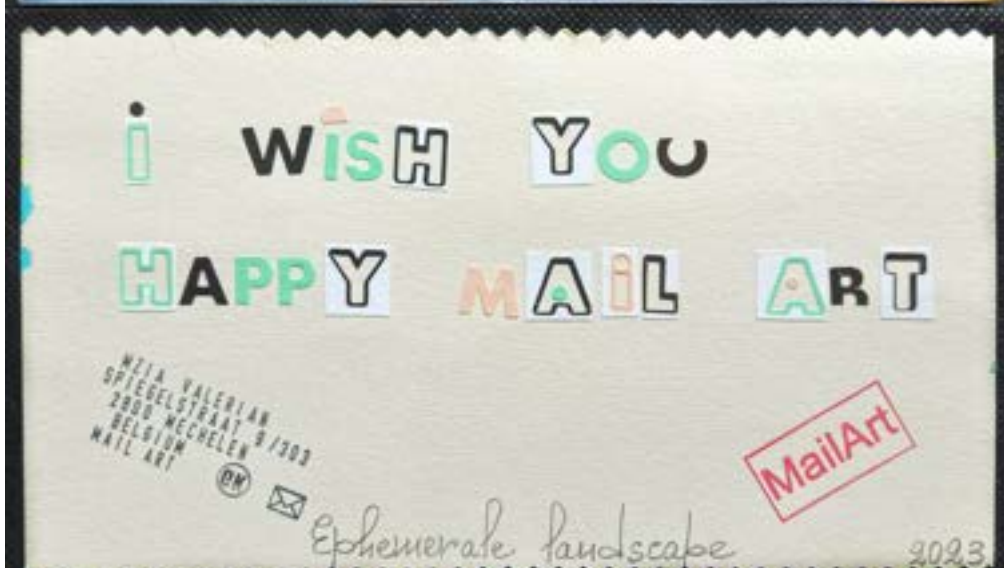 i WiSH YOU
HAPPY MAiL ART
MZIA VALERIAN
SPIEGELSTRAAT 9/303
2800 MECHELEN
BELGIUM
MAIL ART
MailArt
Ephemerale landscape
2023